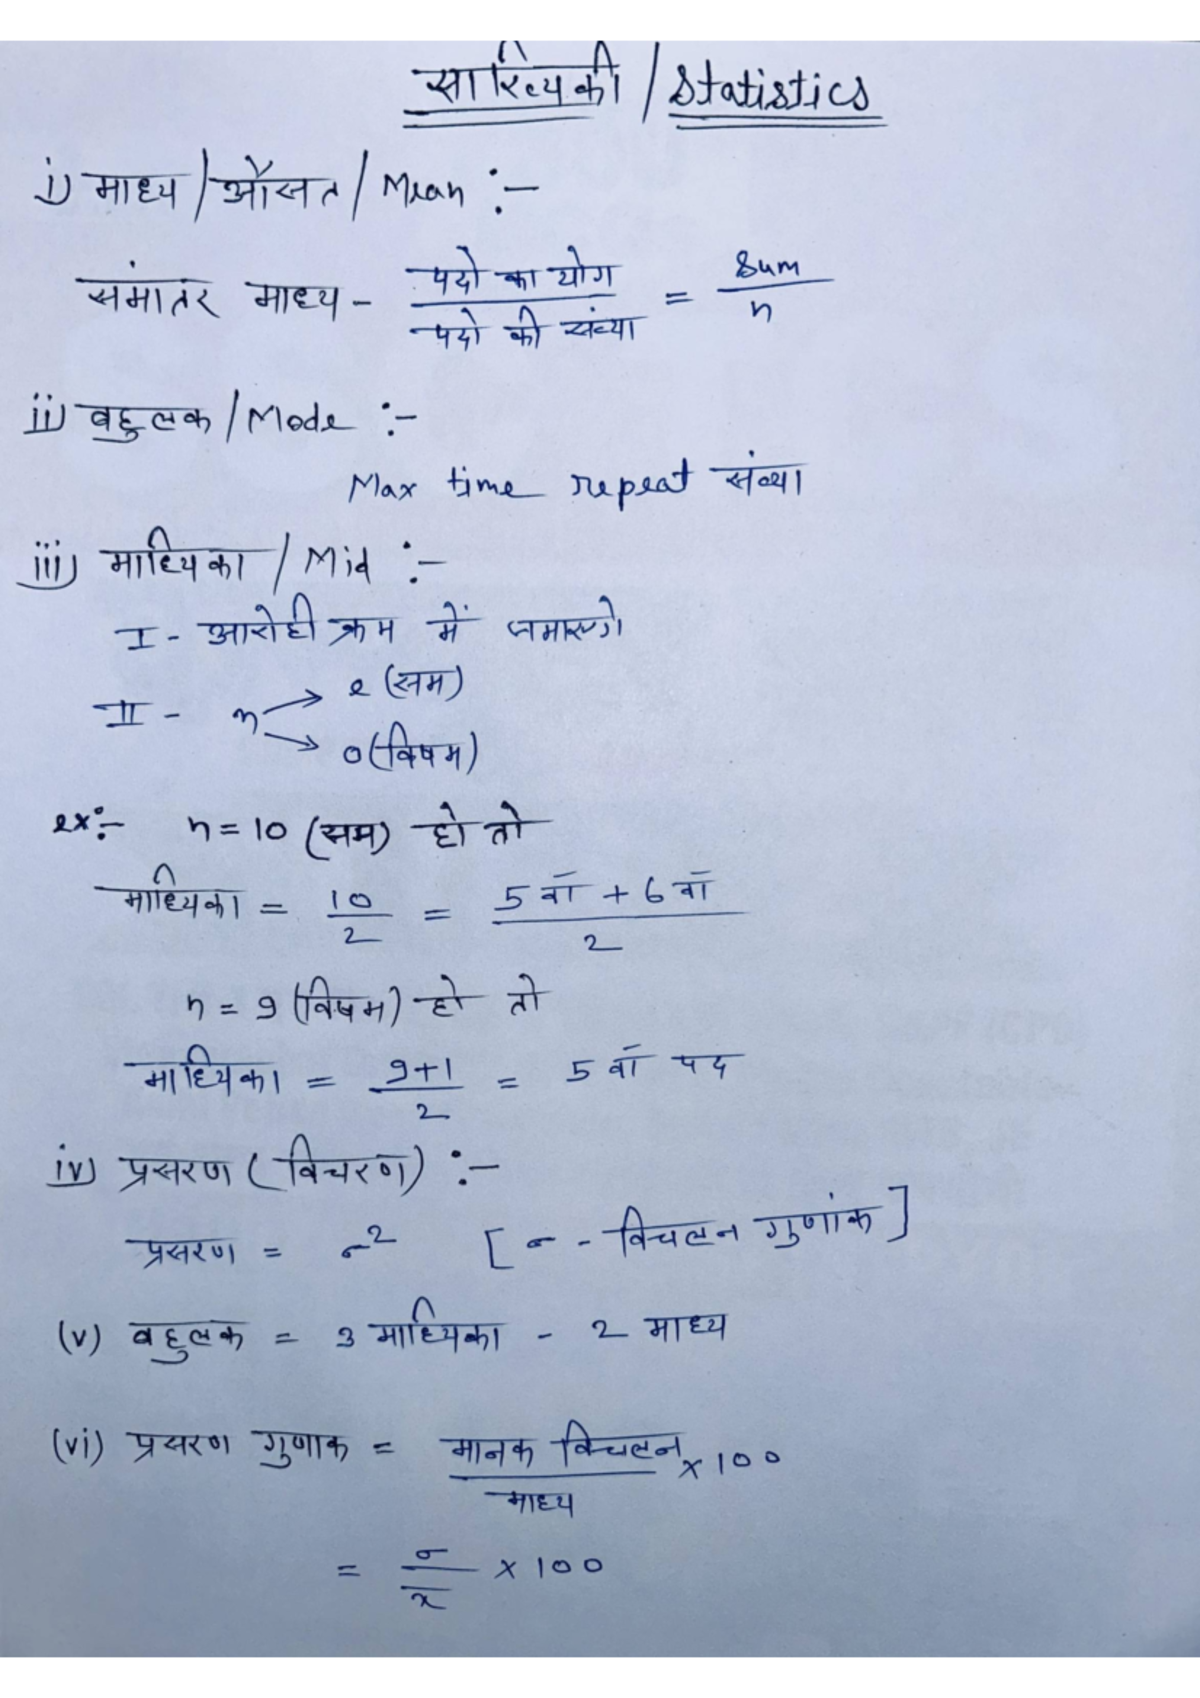 सांख्यिकी / Statistics
i) माध्य / औसत / Mean :-
समांतर माध्य - पदो का योग / पदो की संख्या = Sum / n
ii) बहुलक / Mode :-
Max time repeat संख्या
iii) माध्यिका / Mid :-
I - आरोही क्रम में जमाएगे
II - n → e (सम)
→ o (विषम)
ex:- n = 10 (सम) हो तो
माध्यिका = 10/2 = 5 वाँ + 6 वाँ / 2
n = 9 (विषम) हो तो
माध्यिका = 9+1 / 2 = 5 वाँ पद
iv) प्रसरण (विचरण) :-
प्रसरण = σ² [σ - विचलन गुणांक]
(v) बहुलक = 3 माध्यिका - 2 माध्य
(vi) प्रसरण गुणाक = मानक विचलन / माध्य × 100
= σ / x̄ × 100